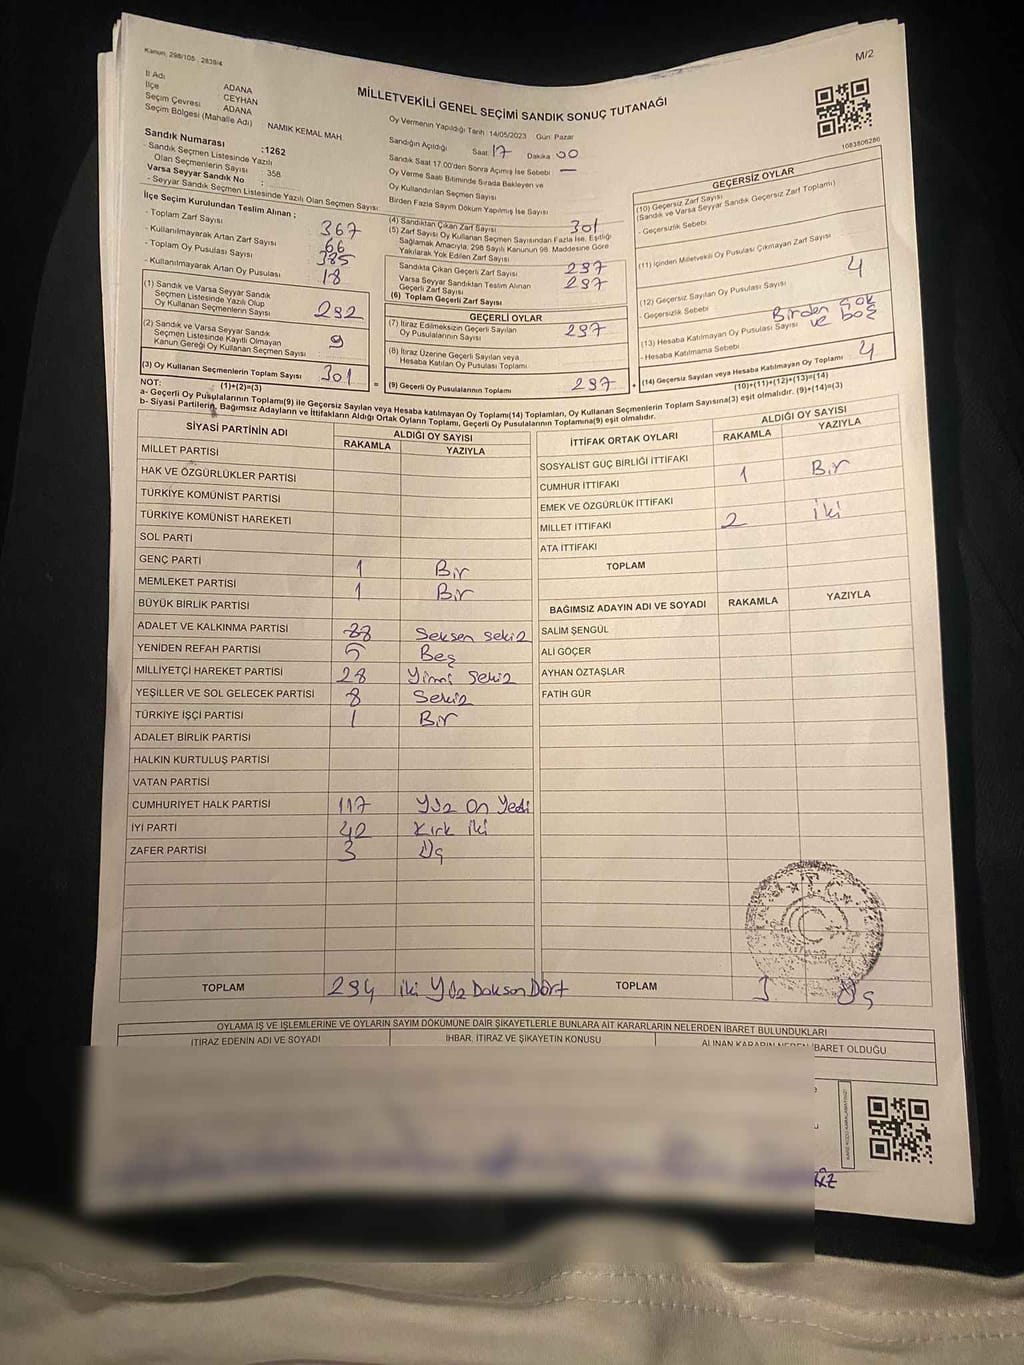 Kanun, 298/105 , 2839/4
M/2
MİLLETVEKİLİ GENEL SEÇİMİ SANDIK SONUÇ TUTANAĞI
İl Adı
ADANA
İlçe
CEYHAN
Seçim Çevresi
ADANA
Seçim Bölgesi (Mahalle Adı)
NAMIK KEMAL MAH
Sandık Numarası :1262
- Sandık Seçmen Listesinde Yazılı
Olan Seçmenlerin Sayısı : 358
Varsa Seyyar Sandık No :
- Seyyar Sandık Seçmen Listesinde Yazılı Olan Seçmen Sayısı
Oy Vermenin Yapıldığı Tarih :14/05/2023 Gün: Pazar
Sandığın Açıldığı Saat: 17 Dakika: 00
Sandık Saat 17.00'den Sonra Açılmış İse Sebebi —
Oy Verme Saati Bitiminde Sırada Bekleyen ve
Oy Kullandırılan Seçmen Sayısı
Birden Fazla Sayım Döküm Yapılmış İse Sayısı
1083806280
İlçe Seçim Kurulundan Teslim Alınan ;
- Toplam Zarf Sayısı 367
- Kullanılmayarak Artan Zarf Sayısı 66
- Toplam Oy Pusulası Sayısı 385
- Kullanılmayarak Artan Oy Pusulası 18
(1) Sandık ve Varsa Seyyar Sandık
Seçmen Listesinde Yazılı Olup
Oy Kullanan Seçmenlerin Sayısı 292
(2) Sandık ve Varsa Seyyar Sandık
Seçmen Listesinde Kayıtlı Olmayan
Kanun Gereği Oy Kullanan Seçmen Sayısı 9
(3) Oy Kullanan Seçmenlerin Toplam Sayısı 301
(1)+(2)=(3)
(4) Sandıktan Çıkan Zarf Sayısı 301
(5) Zarf Sayısı Oy Kullanan Seçmen Sayısından Fazla İse, Eşitliği
Sağlamak Amacıyla, 298 Sayılı Kanunun 98. Maddesine Göre
Yakılarak Yok Edilen Zarf Sayısı
Sandıkta Çıkan Geçerli Zarf Sayısı 297
Varsa Seyyar Sandıktan Teslim Alınan
Geçerli Zarf Sayısı 297
(6) Toplam Geçerli Zarf Sayısı
GEÇERLİ OYLAR
(7) İtiraz Edilmeksizin Geçerli Sayılan
Oy Pusulalarının Sayısı 297
(8) İtiraz Üzerine Geçerli Sayılan veya
Hesaba Katılan Oy Pusulası Toplamı
= (9) Geçerli Oy Pusulalarının Toplamı 297 +
GEÇERSİZ OYLAR
(10) Geçersiz Zarf Sayısı
(Sandık ve Varsa Seyyar Sandık Geçersiz Zarf Toplamı)
- Geçersizlik Sebebi
(11) İçinden Milletvekili Oy Pusulası Çıkmayan Zarf Sayısı
(12) Geçersiz Sayılan Oy Pusulası Sayısı 4
- Geçersizlik Sebebi Birden çok ve boş
(13) Hesaba Katılmayan Oy Pusulası Sayısı
- Hesaba Katılmama Sebebi
(14) Geçersiz Sayılan veya Hesaba Katılmayan Oy Toplamı 4
(10)+(11)+(12)+(13)=(14)
NOT:
a- Geçerli Oy Pusulalarının Toplamı(9) ile Geçersiz Sayılan veya Hesaba katılmayan Oy Toplamı(14) Toplamları, Oy Kullanan Seçmenlerin Toplam Sayısına(3) eşit olmalıdır. (9)+(14)=(3)
b- Siyasi Partilerin, Bağımsız Adayların ve İttifakların Aldığı Ortak Oyların Toplamı, Geçerli Oy Pusulalarının Toplamına(9) eşit olmalıdır.
SİYASİ PARTİNİN ADI
ALDIĞI OY SAYISI
RAKAMLA YAZIYLA
MİLLET PARTİSİ
HAK VE ÖZGÜRLÜKLER PARTİSİ
TÜRKİYE KOMÜNİST PARTİSİ
TÜRKİYE KOMÜNİST HAREKETİ
SOL PARTİ
GENÇ PARTİ 1 Bir
MEMLEKET PARTİSİ 1 Bir
BÜYÜK BİRLİK PARTİSİ
ADALET VE KALKINMA PARTİSİ 88 Seksen sekiz
YENİDEN REFAH PARTİSİ 5 Beş
MİLLİYETÇİ HAREKET PARTİSİ 28 Yirmi sekiz
YEŞİLLER VE SOL GELECEK PARTİSİ 8 Sekiz
TÜRKİYE İŞÇİ PARTİSİ 1 Bir
ADALET BİRLİK PARTİSİ
HALKIN KURTULUŞ PARTİSİ
VATAN PARTİSİ
CUMHURİYET HALK PARTİSİ 117 Yüz On Yedi
İYİ PARTİ 42 Kırk iki
ZAFER PARTİSİ 3 Üç
TOPLAM 294 iki Yüz Doksan Dört
İTTİFAK ORTAK OYLARI
ALDIĞI OY SAYISI
RAKAMLA YAZIYLA
SOSYALİST GÜÇ BİRLİĞİ İTTİFAKI
CUMHUR İTTİFAKI 1 Bir
EMEK VE ÖZGÜRLÜK İTTİFAKI
MİLLET İTTİFAKI 2 iki
ATA İTTİFAKI
TOPLAM
BAĞIMSIZ ADAYIN ADI VE SOYADI RAKAMLA YAZIYLA
SALİM ŞENGÜL
ALİ GÖÇER
AYHAN ÖZTAŞLAR
FATİH GÜR
T.C.
TOPLAM 3 Üç
OYLAMA İŞ VE İŞLEMLERİNE VE OYLARIN SAYIM DÖKÜMÜNE DAİR ŞİKAYETLERLE BUNLARA AİT KARARLARIN NELERDEN İBARET BULUNDUKLARI
İTİRAZ EDENİN ADI VE SOYADI
İHBAR, İTİRAZ VE ŞİKAYETİN KONUSU
ALINAN KARARIN NEDEN İBARET OLDUĞU